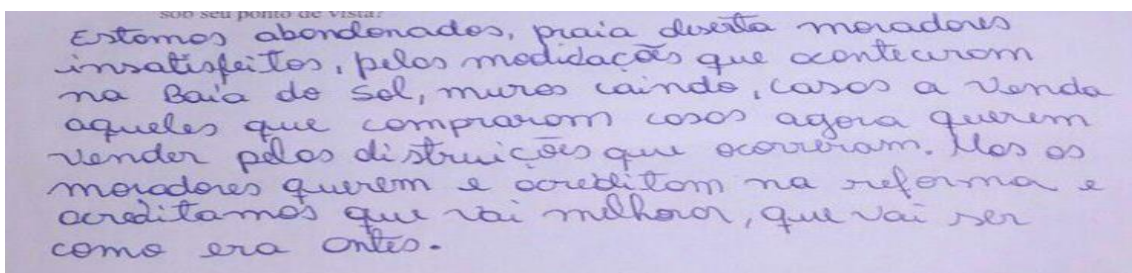 sob seu ponto de vista?
Estamos abondonados, praia deserta moradores
insatisfeitos, pelas modidações que aconteceram
na Baía do Sol, muros caindo, casas a venda
aqueles que compraram casas agora querem
vender pelas distruições que ocorreram. Mas os
moradores querem e acreditam na reforma e
acreditamos que vai melhorar, que vai ser
como era antes.